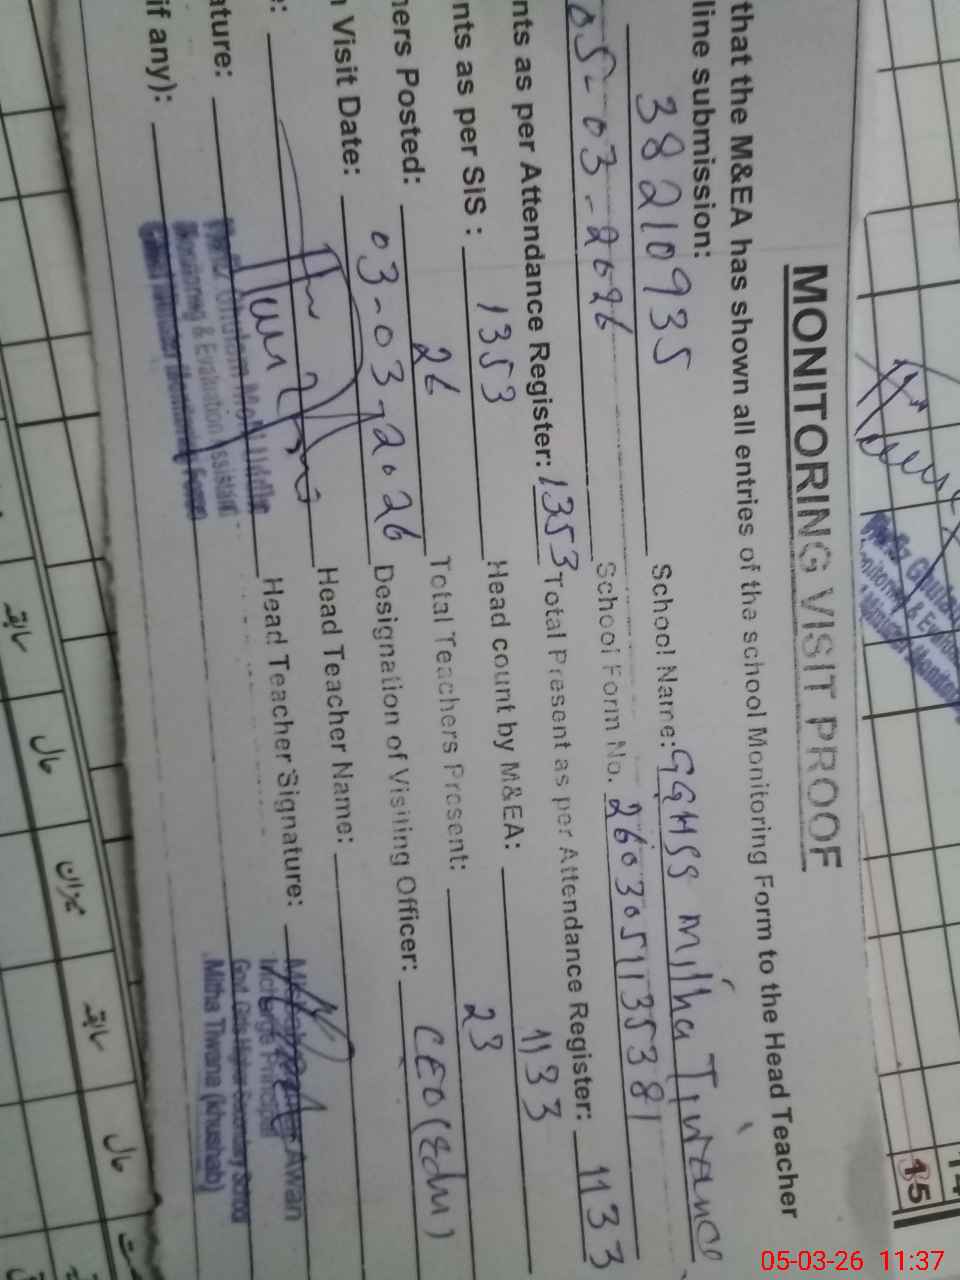 MONITORING VISIT PROOF
that the M&EA has shown all entries of the school Monitoring Form to the Head Teacher
line submission:
38210935 School Name: GGHSS Mitha Tiwana
05-03-2026 School Form No. 2603051135381
nts as per Attendance Register: 1353 Total Present as per Attendance Register: 1133
nts as per SIS : 1353 Head count by M&EA: 1133
hers Posted: 26 Total Teachers Present: 23
n Visit Date: 03-03-2026 Designation of Visiting Officer: CEO (Edu)
e: Head Teacher Name:
ature: Head Teacher Signature:
if any):
Monitoring & Evaluation Assistant
Awan
Incharge Principal
Govt. Girls Higher Secondary School
Mitha Tiwana (khushab)
سابقہ
حال
میزان
سابقہ
حال
14
15
05-03-26 11:37